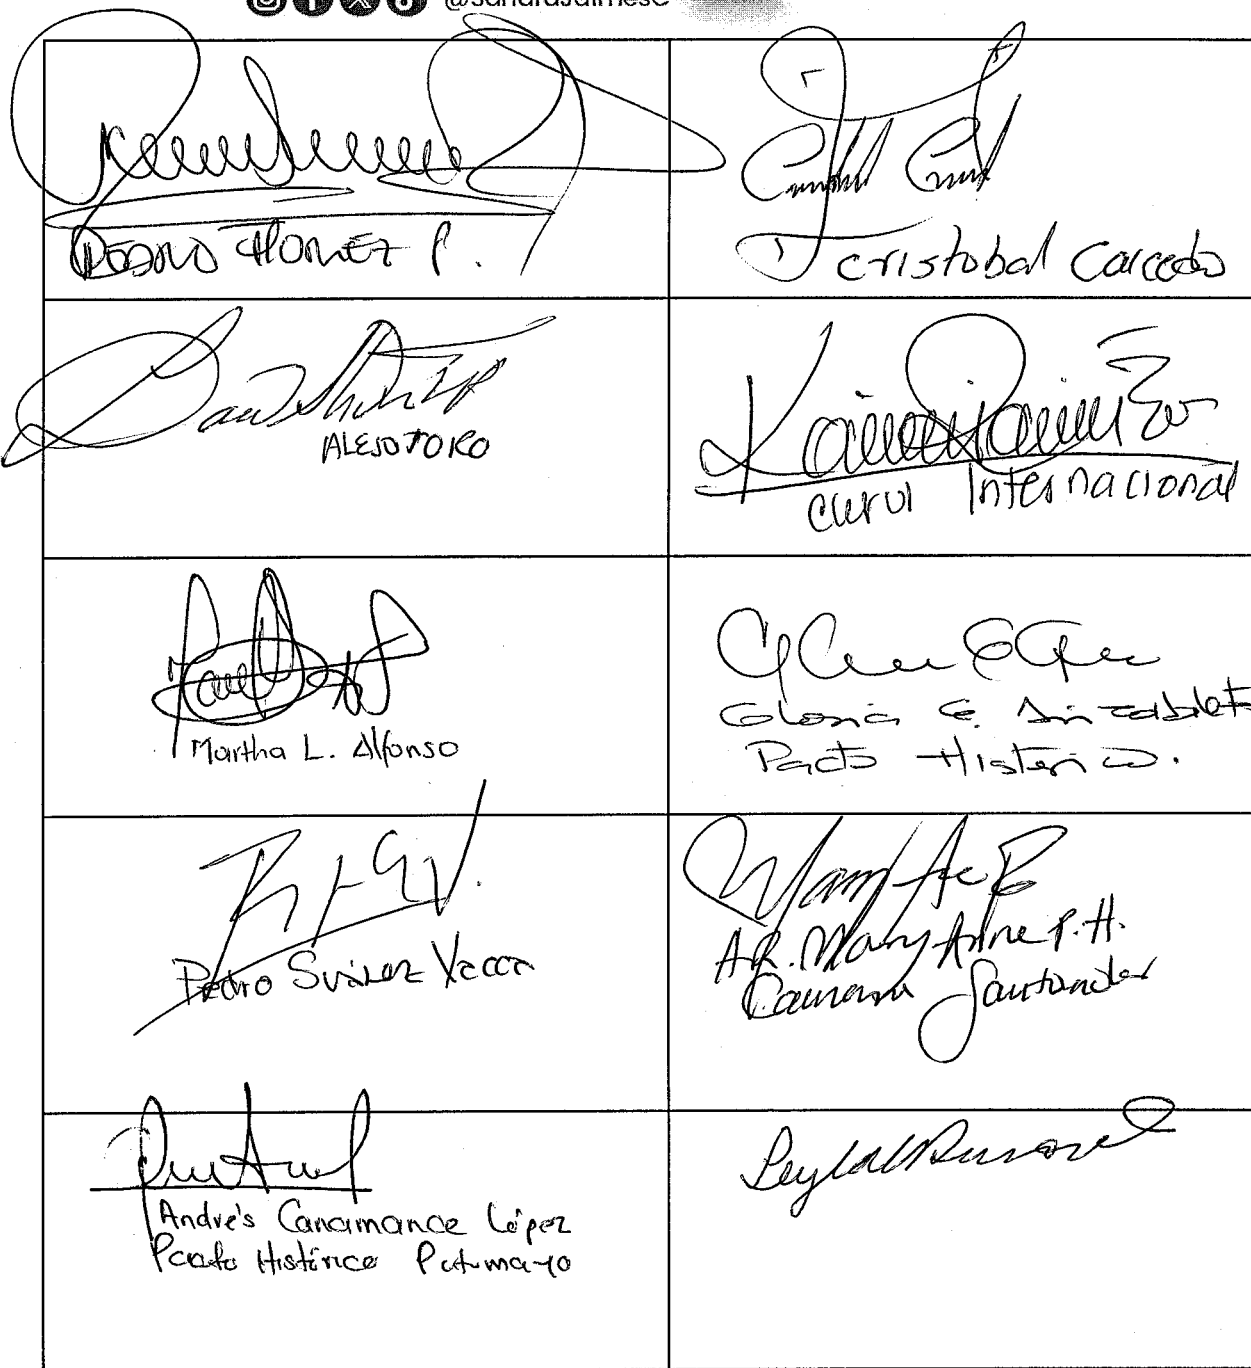 @SandraJaimesC
PEDRO FLOREZ P.
Cristobal Caicedo
ALEJO TORO
Karmen Ramírez
Curul Internacional
Martha L. Alfonso
Gloria E. Arizabaleta
Pacto Histórico.
Pedro Suárez Vacca
A.R. Mary Anne P.H.
Camara Santander
Andrés Cancimance López
Pacto Histórico Putumayo